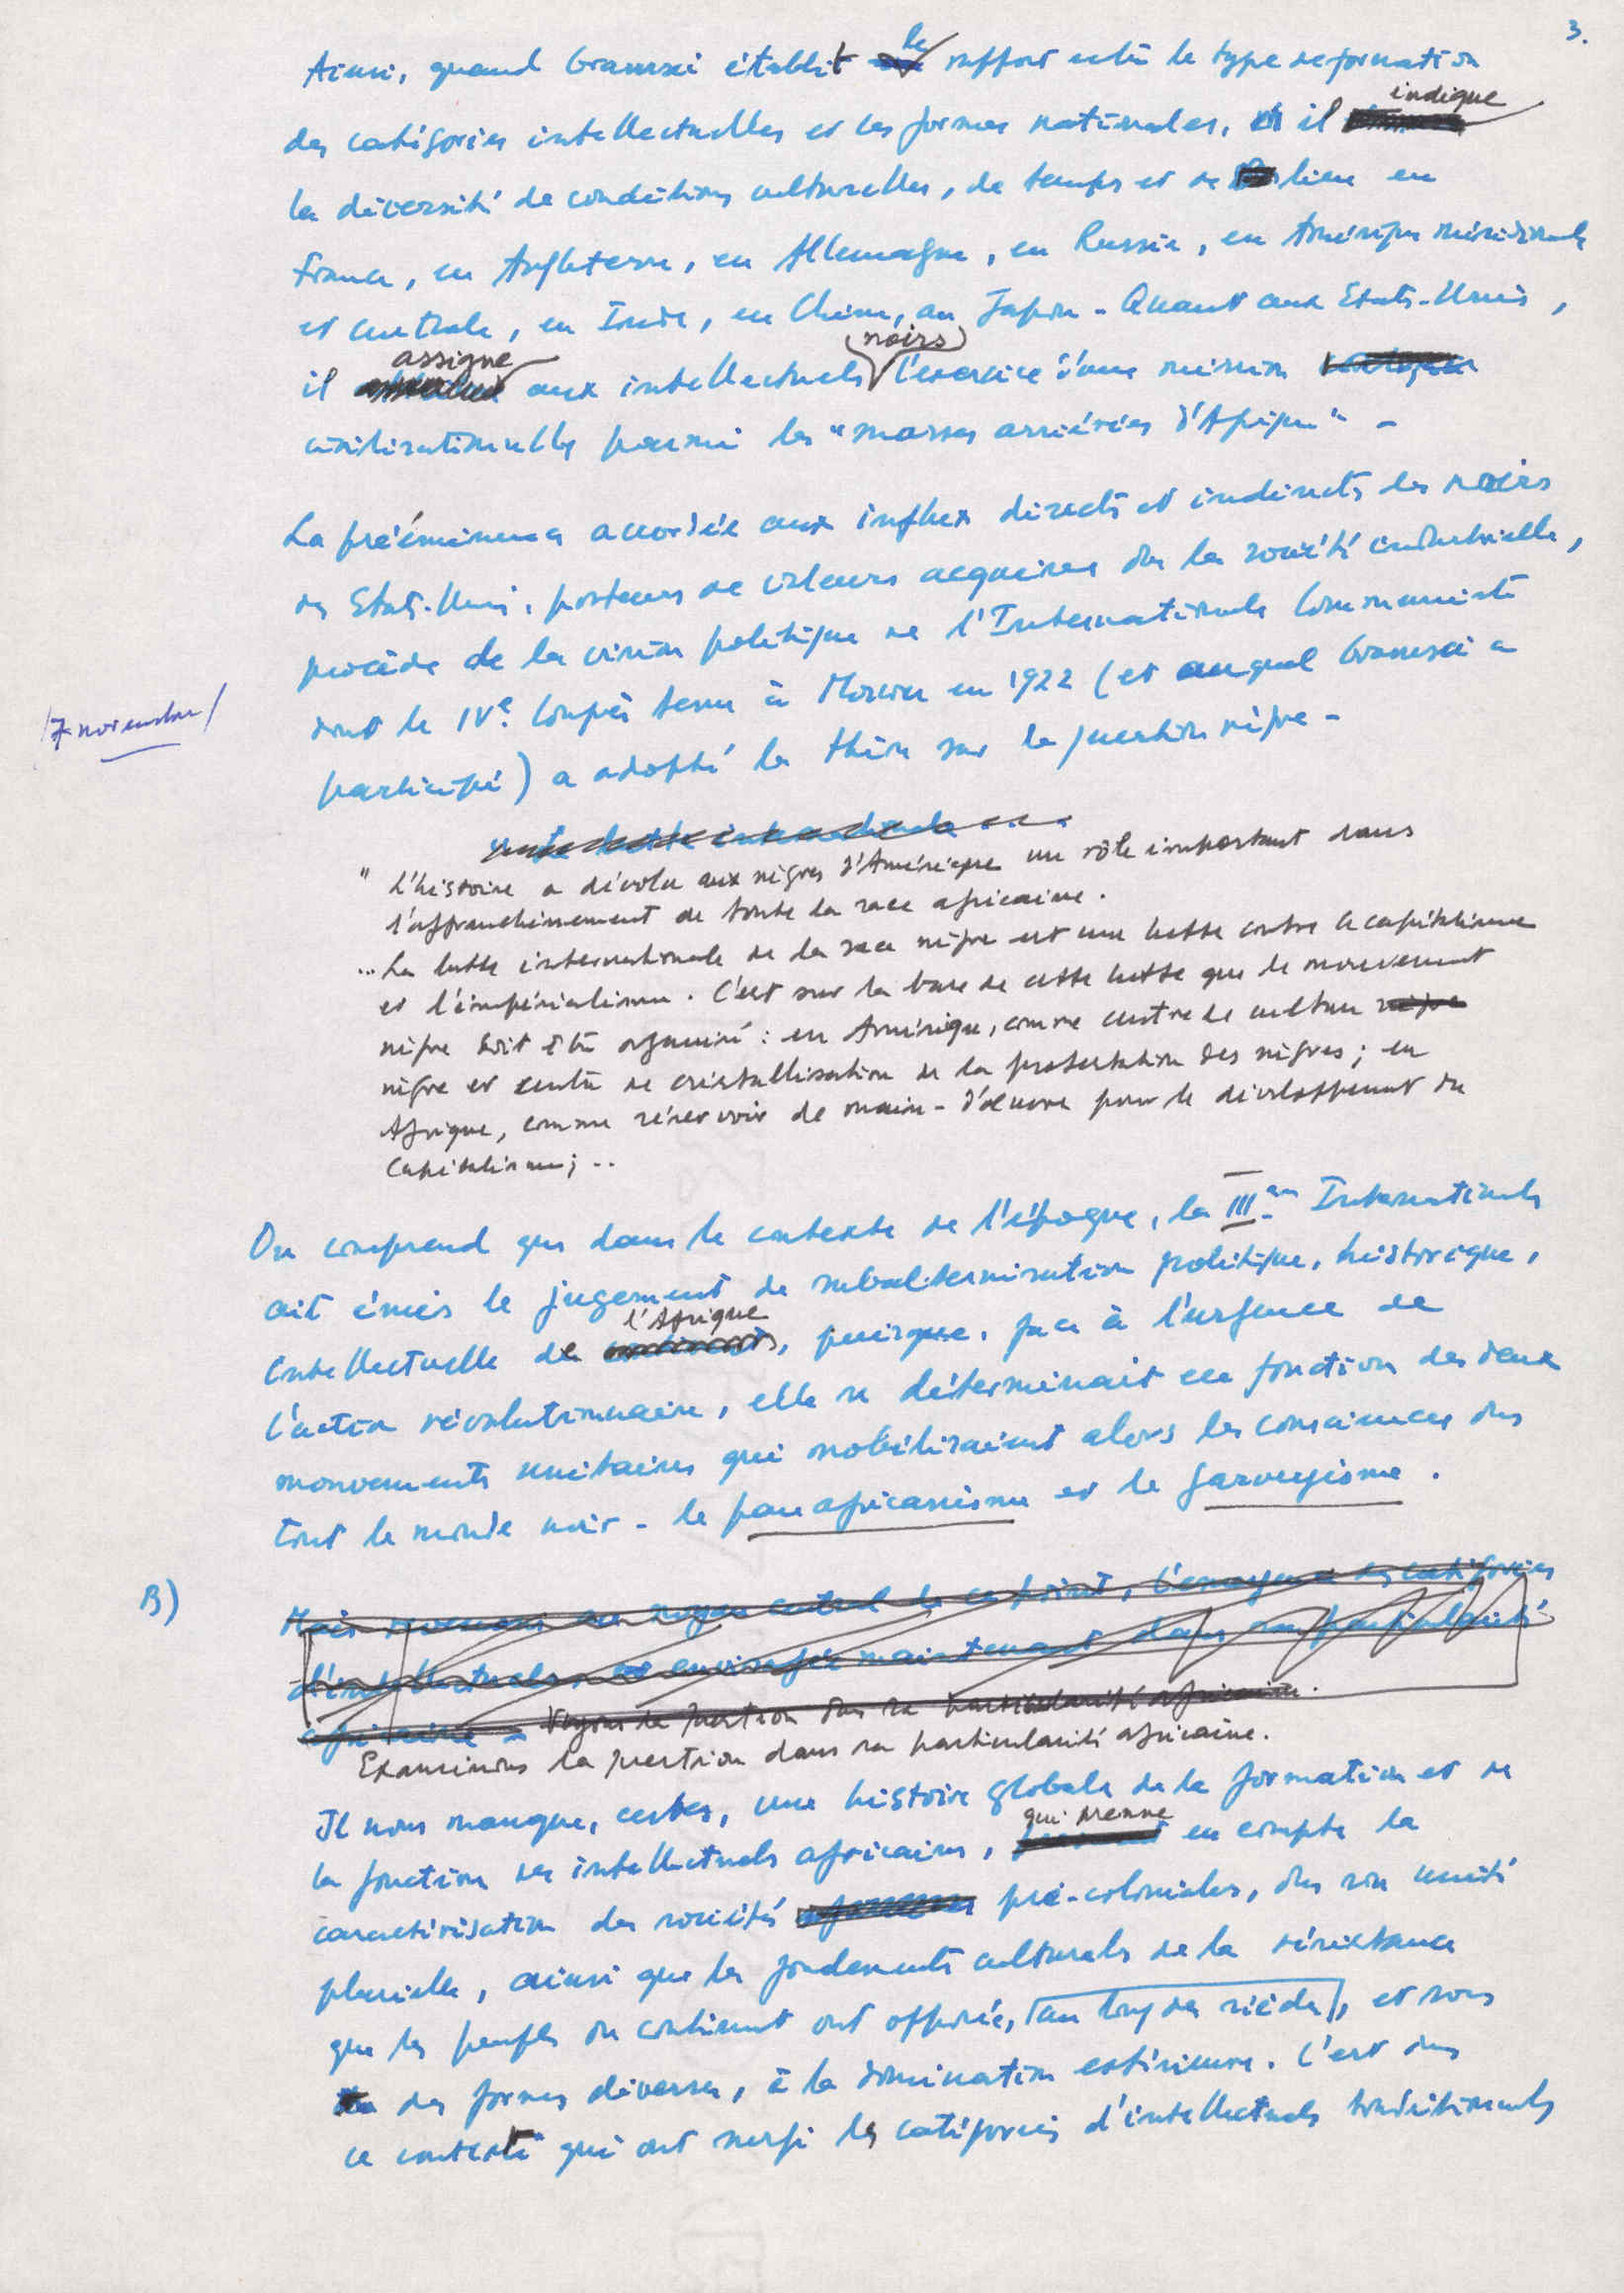 3.
Ainsi, quand Gramsci établit le rapport entre le type de formation
des catégories intellectuelles et les formes nationales, il indique
la diversité de conditions culturelles, de temps et de lieu en
France, en Angleterre, en Allemagne, en Russie, en Amérique méridionale
et centrale, en Inde, en Chine, au Japon - Quant aux Etats-Unis,
il assigne aux intellectuels (noirs) l'exercice d'une mission
civilisationnelle parmi les "masses arriérées d'Afrique" -
La prééminence accordée aux influx directs et indirects des noirs
des Etats-Unis, porteurs de valeurs acquises ds la société industrielle,
procède de la vision politique de l'Internationale Communiste
dont le IVe. Congrès tenu à Moscou en 1922 (et auquel Gramsci a
/7 novembre/
participé) a adopté la thèse sur la question nègre -
"L'histoire a dévolu aux nègres d'Amérique un rôle important dans
l'affranchissement de toute la race africaine.
... La lutte internationale de la race nègre est une lutte contre le capitalisme
et l'impérialisme. C'est sur la base de cette lutte que le mouvement
nègre doit être organisé : en Amérique, comme centre de culture
nègre et centre de cristallisation de la protestation des nègres ; en
Afrique, comme réservoir de main-d'œuvre pour le développement du
Capitalisme ; ..
On comprend que dans le contexte de l'époque, la IIIème Internationale
ait émis le jugement de subalternisation politique, historique,
intellectuelle de l'Afrique, puisque, face à l'urgence de
l'action révolutionnaire, elle se déterminait en fonction des deux
mouvements unitaires qui mobilisaient alors les consciences dans
tout le monde noir - le panafricanisme et le garveyisme.
B)
Mais revenons au noyau central de ce point, l'émergence des catégories
d'intellectuels, envisagée maintenant dans sa particularité
africaine - Voyons la question ds sa particularité africaine.
Examinons la question dans sa particularité africaine.
Il nous manque, certes, une histoire globale de la formation et de
la fonction des intellectuels africains, qui prenne en compte la
caractérisation des sociétés pré-coloniales, ds son unité
plurielle, ainsi que les fondements culturels de la résistance
que les peuples du continent ont opposée, [au long des siècles], et sous
des formes diverses, à la domination extérieure. C'est dans
ce contexte qui ont surgi les catégories d'intellectuels traditionnels